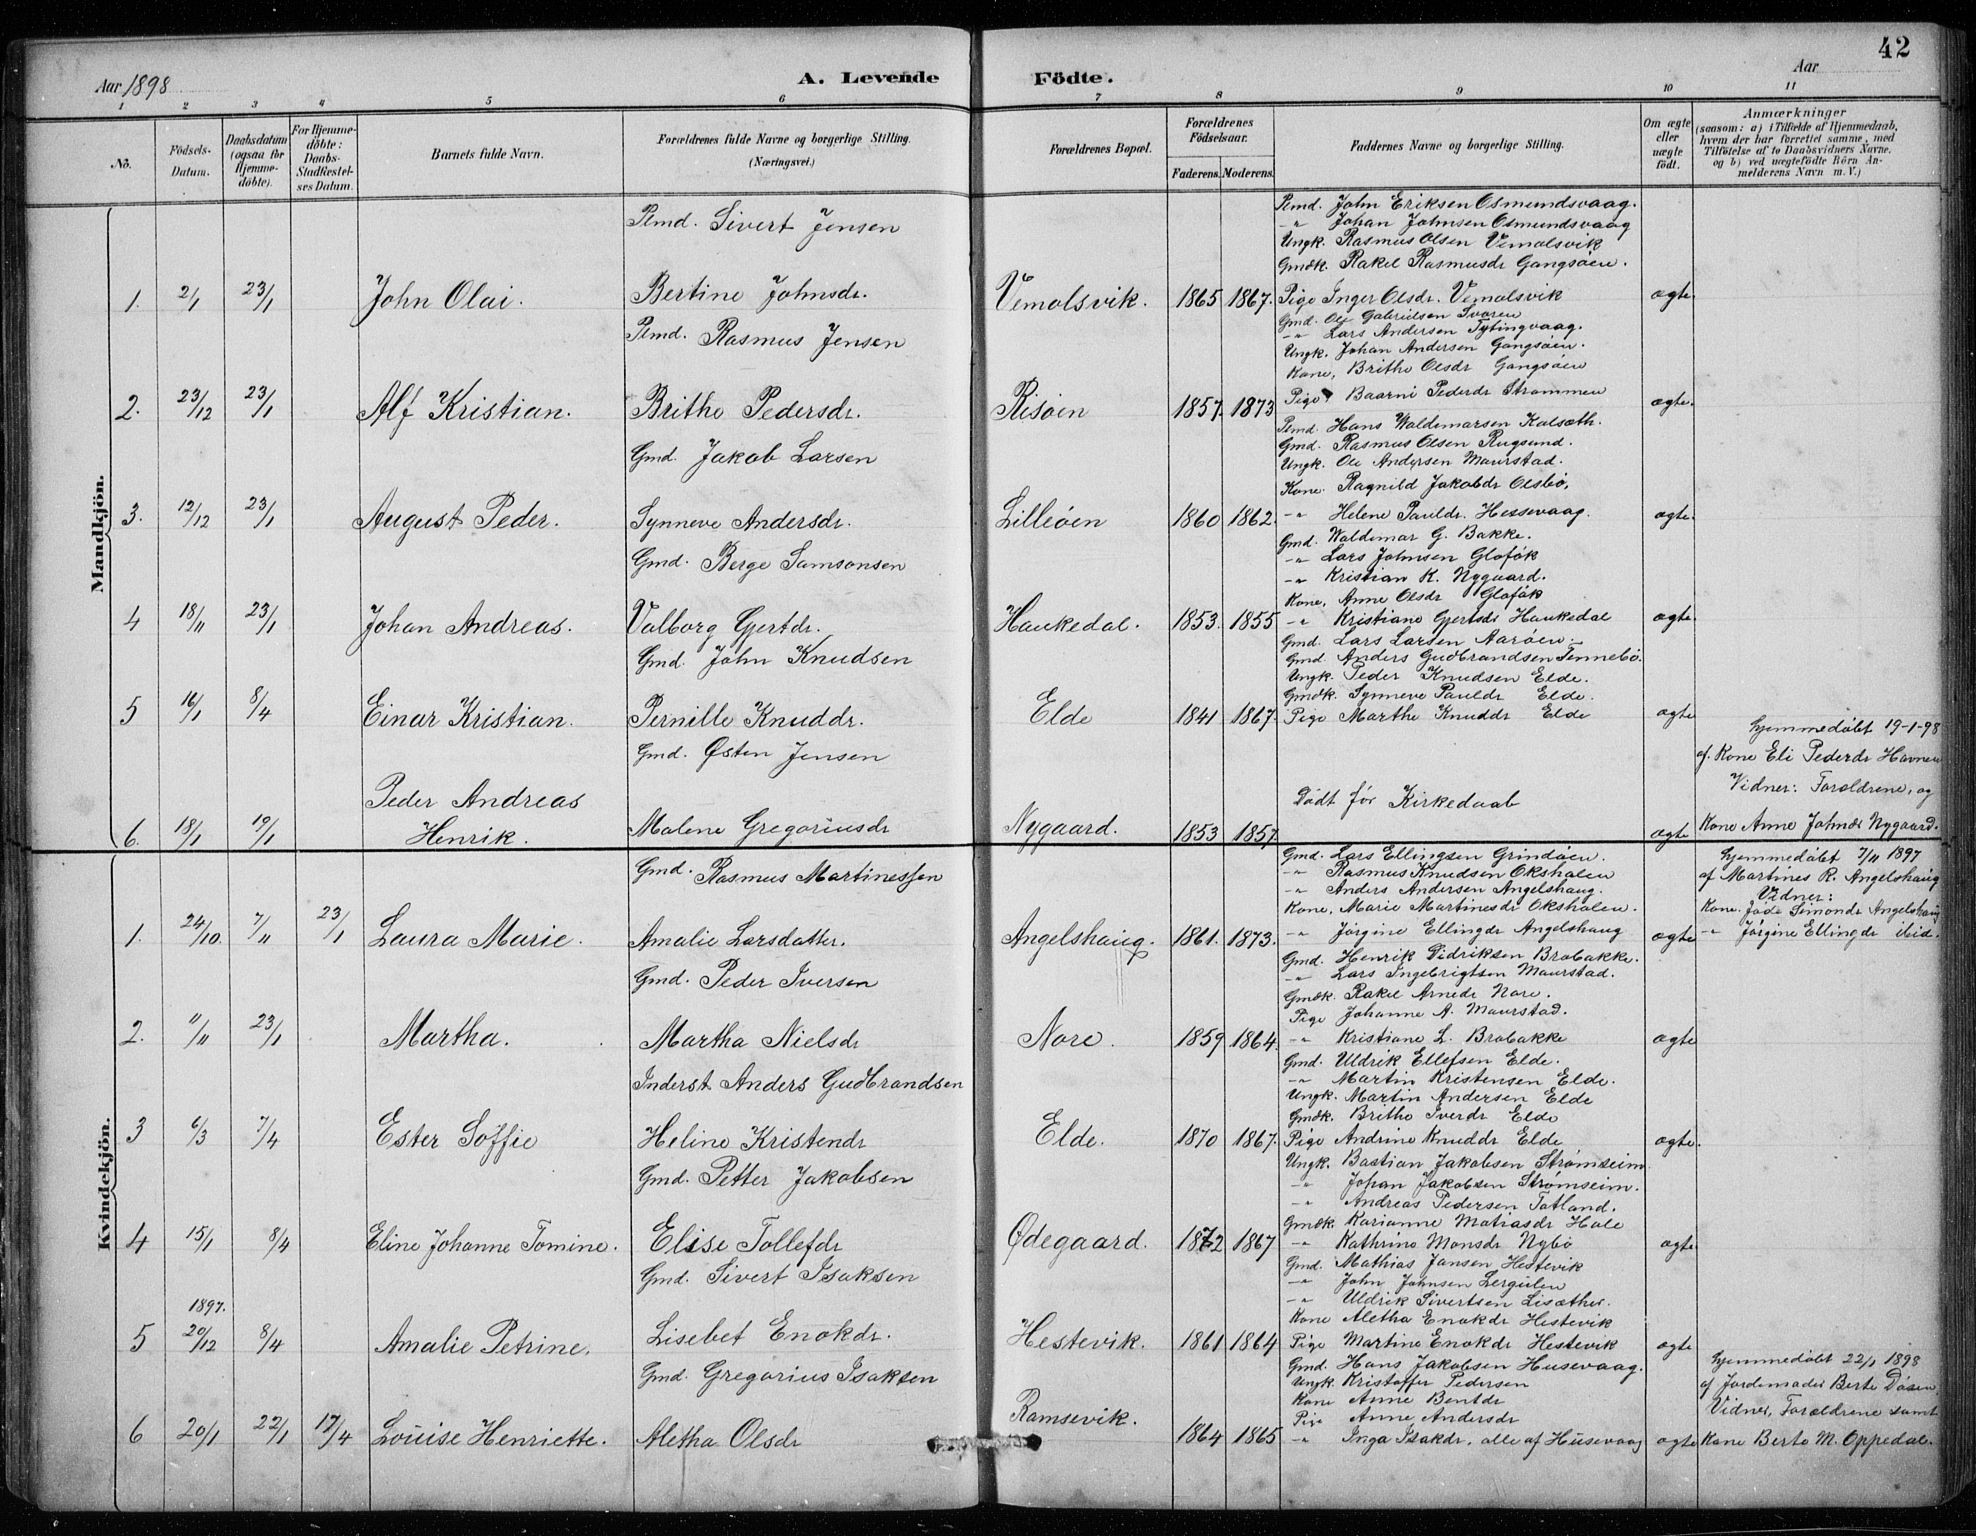 42
Aar 1898
A. Levende Födte.
Aar
1 2 3 4 5 6 7 8 9 10 11
No.
Födsels-Datum.
Daabsdatum (ogsaa for Hjemme-döbte).
For Hjemme-döbte: Daabs-Stadfæstel-ses Datum.
Barnets fulde Navn.
Forældrenes fulde Navne og borgerlige Stilling. (Næringsvei.)
Forældrenes Bopæl.
Forældrenes Födselsaar.
Faderens. Moderens.
Faddernes Navne og borgerlige Stilling.
Om ægte eller uægte födt.
Anmærkninger
(saasom: a) i Tilfælde af Hjemmedaab, hvem der har forrettet samme, med Tilföielse af to Daabsvidners Navne, og b) ved uægtefödte Börn An-melderens Navn m. V.)
Mandkjön.
1. 2/1 23/1 John Olai.
Pmd. Sivert Jensen
Bertine Johnsdr.
Vemolsvik. 1865 1867.
Pmd. John Eriksen Osmundsvaag.
-"- Johan Johnsen Osmundsvaag
Ungk. Rasmus Olsen Vemolsvik
Gmdk. Rakel Rasmusdr Gangsøen.
Pige Inger Olsdr. Vemolsvik
ægte.
2. 23/12 23/1 Alf Kristian.
Pmd. Rasmus Jensen
Brithe Pedersdr.
Risøen 1857. 1873
Gmd. Ole Gabrielsen Ivaren
-"- Lars Andersen Tytingvaag.
Ungk. Johan Andersen Gangsøen.
Kone, Brithe Olsdr Gangsøen
Pige Baarni Pederdr Strømmen
ægte.
3. 12/12 23/1 August Peder.
Gmd. Jakob Larsen
Synneve Andersdr.
Lilleøen 1860 1862.
Pmd. Hans Waldemarsen Kalsæth.
Gmd. Rasmus Olsen Rugsund.
Ungk. Ole Andersen Maurstad.
Kone. Ragnild Jakobdr Olsbø,
-"- Helene Pauldr. Hessevaag.
ægte.
4 18/11 23/1 Johan Andreas.
Gmd. Berge Samsonsen
Valborg Gjertdr.
Haukedal. 1853. 1855
Gmd. Waldemar G. Bakke.
-"- Lars Johnsen Gloføk
-"- Kristian K. Nygaard.
Kone, Anne Olsdr Gloføk
-"- Kristiane Gjertsdr Haukedal
ægte.
5 16/1 8/4 Einar Kristian.
Gmd. John Knudsen
Pernille Knuddr.
Elde 1841 1867.
Gmd. Lars Larsen Aarøen
Gmd Anders Gudbrandsen Tennebø.
Ungk. Peder Knudsen Elde.
Gmdk. Synneve Pauldr Elde.
Pige Marthe Knuddr Elde
ægte
6. 18/1 19/1 Peder Andreas
Henrik.
Gmd. Østen Jensen
Malene Gregoriusdr
Nygaard. 1853 1857
Dødt før Kirkedaab
ægte
hjemmedøbt 19-1-98
af. Kone Eli Pederdr Havnen
Vidner: Forældrene, og
Kone Anne Johnsdr Nygaard.
Kvindekjön.
1. 24/10. 7/11 23/1 Laura Marie.
Gmd. Rasmus Martinessen
Amalie Larsdatter.
Angelshaug. 1861. 1873.
Gmd. Lars Ellingsen Grindøen.
-"- Rasmus Knudsen Okshalen
-"- Anders Andersen Angelshaug.
Kone, Marie Martinesdr Okshalen.
-"- Jørgine Ellingdr Angelshaug
ægte
hjemmedøbt 7/11 1897
af Martines R. Angelshaug
Vidner:
Kone Jøde Simondr Angelshaug
-"- Jørgine Ellingdr ibid.
2. 11/11 23/1 Martha.
Gmd. Peder Iversen
Martha Nielsdr
Nore. 1859 1864.
Gmd. Henrik Didriksen Brobakke.
-"- Lars Ingebrigtsen Maurstad.
Gmdk. Rakel Arnedr Nore.
Pige Johanne A. Maurstad.
-"- Kristiane L. Brobakke
ægte
3 6/3 7/4 Ester Soffie
Inderst Anders Gudbrandsen
Heline Kristendr
Elde. 1870 1867.
Gmd. Uldrik Ellefsen Elde.
-"- Martin Kristensen Elde.
Ungk. Martin Andersen Elde
Gmdk. Brithe Iverdr Elde
Pige Andrine Knuddr Elde
ægte.
4 15/1 8/4 Eline Johanne Tomine.
Gmd. Petter Jakobsen
Elise Tollefdr
Ødegaard. 1872 1867
Ungk. Bastian Jakobsen Strømseim
-"- Johan Jakobsen Strømseim.
-"- Andreas Pedersen Totland.
Gmdk. Karianne Matiasdr Hole
-"- Kathrine Monsdr Nybø
ægte
5 1897. 20/12 8/4 Amalie Petrine.
Gmd. Sivert Isaksen
Lisebet Enokdr.
Hestevik. 1861 1864
Gmd. Mathias Jansen Hestevik
-"- John Johnsen Lergulen
-"- Uldrik Sivertsen Lisæther.
Kone Aletha Enokdr Hestevik
Pige Martine Enokdr Hestevik
ægte
6 20/1 22/1 17/4 Louise Henriette.
Gmd. Gregorius Isaksen
Aletha Olsdr
Ramsevik. 1864 1865
Gmd. Hans Jakobsen Husevaag.
Ungk. Kristoffer Pedersen
Kone Anne Bentdr
Pige Anne Andersdr
-"- Inga Isakdr, alle af Husevaag
ægte
hjemmedøbt 22/1 1898
af Jordemoder Berte Døsen
Vidner, Forældrene samt
Kone Berte M. Oppedal.